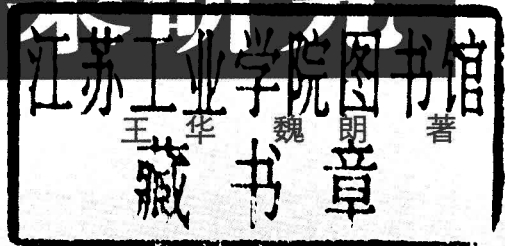 江苏工业学院图书馆
王华 魏朗 著
藏书章